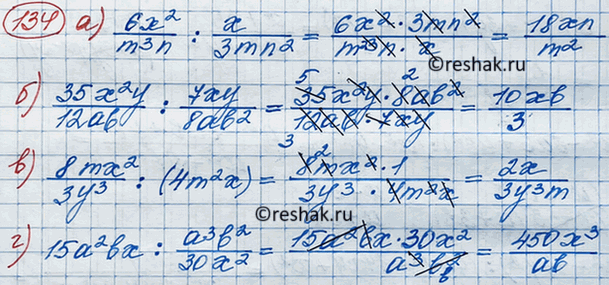 134 а) 6x²/m³n : x/3mn² = 6x²·3mn²/m³n·x = 18xn/m²
©reshak.ru
б) 35x²y/12ab : 7xy/8ab² = 35x²y·8ab²/12ab·7xy = 10xb/3
5 2 3
в) 8mx²/3y³ : (4m²x) = 8mx²·1/3y³·4m²x = 2x/3y³m
2
©reshak.ru
г) 15a²bx : a³b²/30x² = 15a²bx·30x²/a³b² = 450x³/ab
b